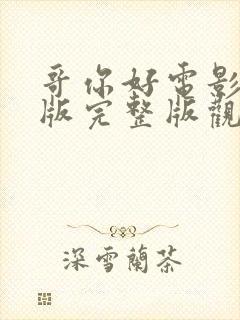 哥你好電影
版完整版觀
深雪蘭茶